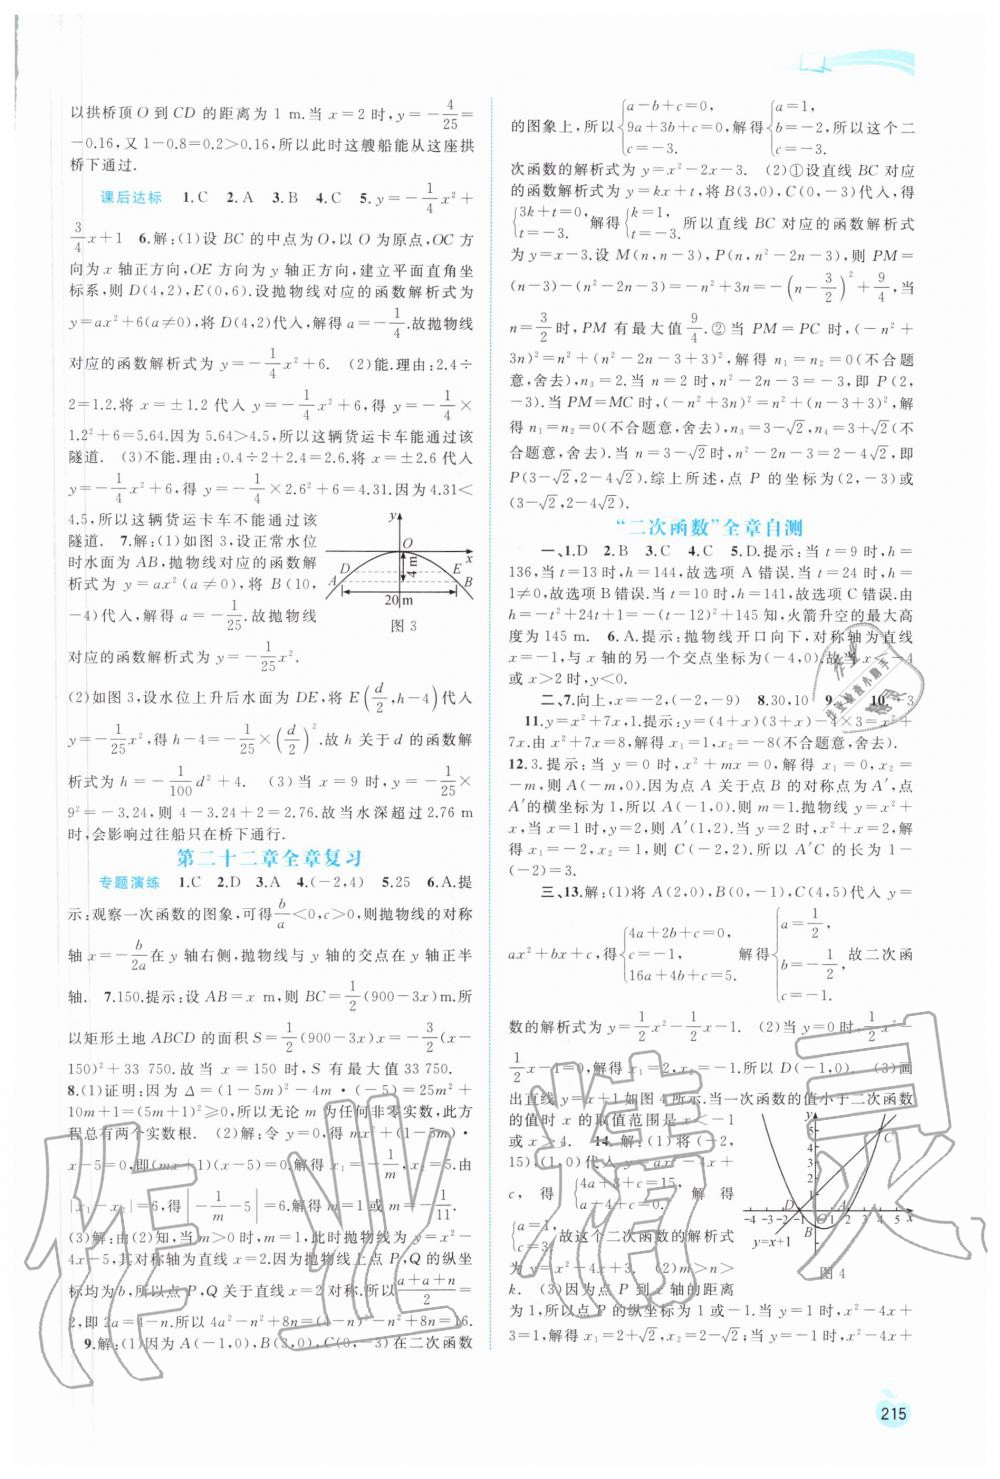 以拱桥顶 O 到 CD 的距离为 1 m.当 x＝2 时,y＝－4/25＝
－0.16,又 1－0.8＝0.2＞0.16,所以此时这艘船能从这座拱
桥下通过.
课后达标 1.C 2.A 3.B 4.C 5.y＝－1/4x²＋
3/4x＋1 6.解:(1)设 BC 的中点为 O,以 O 为原点,OC 方
向为 x 轴正方向,OE 方向为 y 轴正方向,建立平面直角坐
标系,则 D(4,2),E(0,6).设抛物线对应的函数解析式为
y＝ax²＋6(a≠0),将 D(4,2)代入,解得 a＝－1/4.故抛物线
对应的函数解析式为 y＝－1/4x²＋6. (2)能.理由:2.4÷
2＝1.2.将 x＝±1.2 代入 y＝－1/4x²＋6,得 y＝－1/4×
1.2²＋6＝5.64.因为 5.64＞4.5,所以这辆货运卡车能通过该
隧道. (3)不能.理由:0.4÷2＋2.4＝2.6.将 x＝±2.6 代入
y＝－1/4x²＋6,得 y＝－1/4×2.6²＋6＝4.31.因为 4.31＜
4.5,所以这辆货运卡车不能通过该
隧道. 7.解:(1)如图 3,设正常水位
时水面为 AB,抛物线对应的函数解
析式为 y＝ax²(a≠0),将 B(10,
－4)代入,解得 a＝－1/25.故抛物线
对应的函数解析式为 y＝－1/25x².
y O x D E A B 4 m 20 m
图 3
(2)如图 3,设水位上升后水面为 DE,将 E(d/2,h－4)代入
y＝－1/25x²,得 h－4＝－1/25×(d/2)².故 h 关于 d 的函数解
析式为 h＝－1/100d²＋4. (3)当 x＝9 时,y＝－1/25×
9²＝－3.24,则 4－3.24＋2＝2.76.故当水深超过 2.76 m
时,会影响过往船只在桥下通行.
第二十二章全章复习
专题演练 1.C 2.D 3.A 4.(－2,4) 5.25 6.A.提
示:观察一次函数的图象,可得b/a＜0,c＞0,则抛物线的对称
轴 x＝－b/2a在 y 轴右侧,抛物线与 y 轴的交点在 y 轴正半
轴. 7.150.提示:设 AB＝x m,则 BC＝1/2(900－3x)m.所
以矩形土地 ABCD 的面积 S＝1/2(900－3x)x＝－3/2(x－
150)²＋33 750.故当 x＝150 时,S 有最大值 33 750.
8.(1)证明:因为 Δ＝(1－5m)²－4m·(－5)＝25m²＋
10m＋1＝(5m＋1)²≥0,所以无论 m 为任何非零实数,此方
程总有两个实数根. (2)解:令 y＝0,得 mx²＋(1－5m)·
x－5＝0,即(mx＋1)(x－5)＝0.解得 x₁＝－1/m,x₂＝5.由
|x₁－x₂|＝6,得|－1/m－5|＝6.解得 m＝1或 m＝－1/11.
(3)解:由(2)知,当 m＞0 时,m＝1,此时抛物线为 y＝x²－
4x－5,其对称轴为直线 x＝2.因为抛物线上点 P,Q 的纵坐
标均为 b,所以点 P,Q 关于直线 x＝2 对称.所以(a＋a＋n)/2＝
2,即 2a＝4－n.所以 4a²－n²＋8n＝(4－n)²－n²＋8n＝16.
9.解:(1)因为 A(－1,0),B(3,0),C(0,－3)在二次函数
的图象上,所以{a－b＋c＝0, 9a＋3b＋c＝0, c＝－3. 解得{a＝1, b＝－2, c＝－3. 所以这个二
次函数的解析式为 y＝x²－2x－3. (2)①设直线 BC 对应
的函数解析式为 y＝kx＋t,将 B(3,0),C(0,－3)代入,得
{3k＋t＝0, t＝－3. 解得{k＝1, t＝－3. 所以直线 BC 对应的函数解析式
为 y＝x－3.设 M(n,n－3),P(n,n²－2n－3),则 PM＝
(n－3)－(n²－2n－3)＝－n²＋3n＝－(n－3/2)²＋9/4,当
n＝3/2时,PM 有最大值9/4.②当 PM＝PC 时,(－n²＋
3n)²＝n²＋(n²－2n－3＋3)²,解得 n₁＝n₂＝0(不合题
意,舍去),n₃＝2.当 n＝2 时,n²－2n－3＝－3,即 P(2,
－3).当 PM＝MC 时,(－n²＋3n)²＝n²＋(n－3＋3)²,解
得 n₁＝n₂＝0(不合题意,舍去),n₃＝3－√2,n₄＝3＋√2(不
合题意,舍去).当 n＝3－√2时,n²－2n－3＝2－4√2,即
P(3－√2,2－4√2).综上所述,点 P 的坐标为(2,－3)或
(3－√2,2－4√2).
“二次函数”全章自测
一、1.D 2.B 3.C 4.C 5.D.提示:当 t＝9 时,h＝
136,当 t＝13 时,h＝144,故选项 A 错误.当 t＝24 时,h＝
1≠0,故选项 B 错误.当 t＝10 时,h＝141,故选项 C 错误.由
h＝－t²＋24t＋1＝－(t－12)²＋145 知,火箭升空的最大高
度为 145 m. 6.A.提示:抛物线开口向下,对称轴为直线
x＝－1,与 x 轴的另一个交点坐标为(－4,0).故当 x＜－4
或 x＞2时,y＜0.
二、7.向上,x＝－2,(－2,－9) 8.30,10 9. 10.－3
11.y＝x²＋7x,1.提示:y＝(4＋x)(3＋x)－4×3＝x²＋
7x.由 x²＋7x＝8,解得 x₁＝1,x₂＝－8(不合题意,舍去).
12.3.提示:当 y＝0 时,x²＋mx＝0,解得 x₁＝0,x₂＝
－m,则 A(－m,0).因为点 A 关于点 B 的对称点为 A′,点
A′的横坐标为 1,所以 A(－1,0).则 m＝1.抛物线为 y＝x²＋
x,当 x＝1 时,y＝x²＋x＝2,则 A′(1,2).当 y＝－2 时,
－x²＋x＝－2,解得 x₁＝2,x₂＝－1,则 C(1,－1).所以 A′C 的长为 1－
(－2)＝3.
三、13.解:(1)将 A(2,0),B(0,－1),C(4,5)代入 y＝
ax²＋bx＋c,得{4a＋2b＋c＝0, c＝－1, 16a＋4b＋c＝5. 解得{a＝1/2, b＝－1/2, c＝－1. 故二次函
数的解析式为 y＝1/2x²－1/2x－1. (2)当 y＝0 时,1/2x²－
1/2x－1＝0,解得 x₁＝2,x₂＝－1,所以 D(－1,0). (3)画
出直线 y＝x＋1 如图 4 所示.当一次函数的值小于二次函数
的值时 x 的取值范围是 x＜－1
或 x＞4. 14.解:(1)将(－2,
15),(1,0)代入 y＝ax²－4x＋
c,得{4a＋8＋c＝15, a－4＋c＝0. 解得
{a＝1, c＝3. 故这个二次函数的解析式
为 y＝x²－4x＋3. (2)m＞n＞
k. (3)因为点 P 到 x 轴的距离
y 5 4 3 2 1 C A B D O －4 －3 －2 1 2 3 4 5 x y＝x＋1
图 4
为 1,所以点 P 的纵坐标为 1 或－1.当 y＝1 时,x²－4x＋
3＝1,解得 x₁＝2＋√2,x₂＝2－√2;当 y＝－1 时,x²－4x＋
215
作业精灵